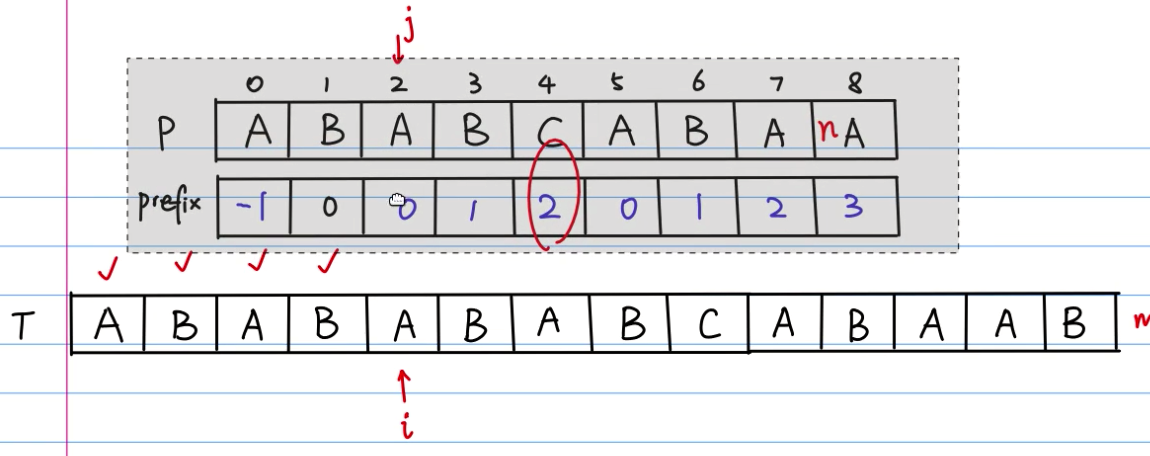 j
0 1 2 3 4 5 6 7 8
P A B A B C A B A n A
prefix -1 0 0 1 2 0 1 2 3
T A B A B A B A B C A B A A B
i